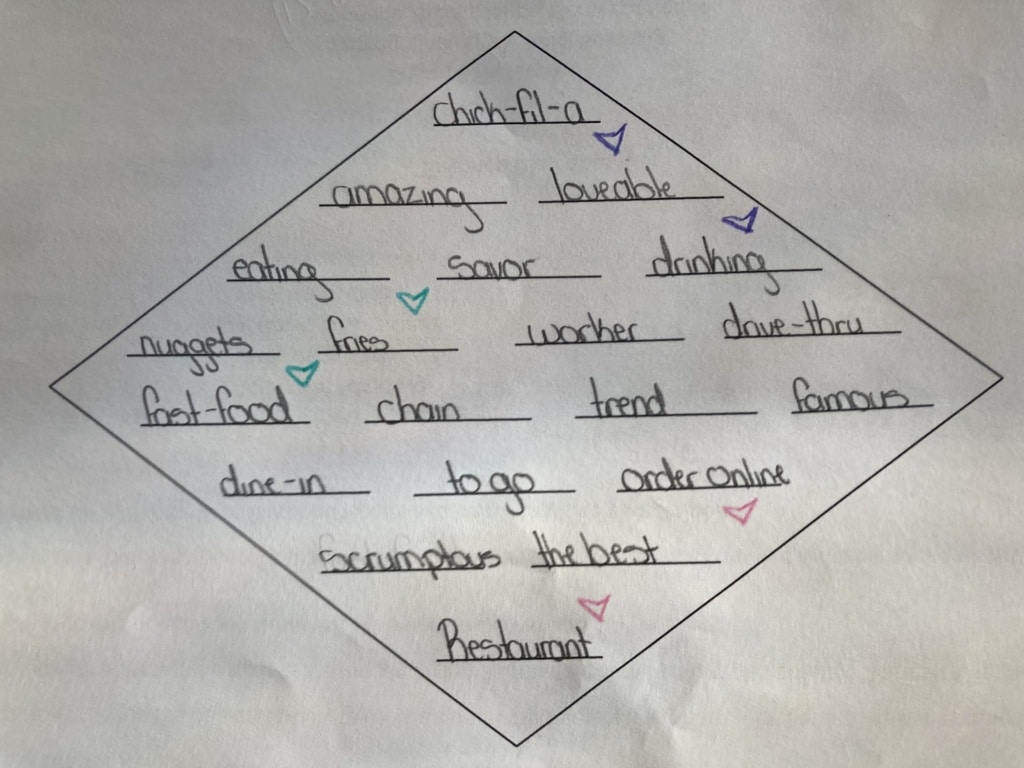 chick-fil-a
amazing loveable
eating savor drinking
nuggets fries worker drive-thru
fast-food chain trend famous
dine-in to go order online
scrumptious the best
Restaurant